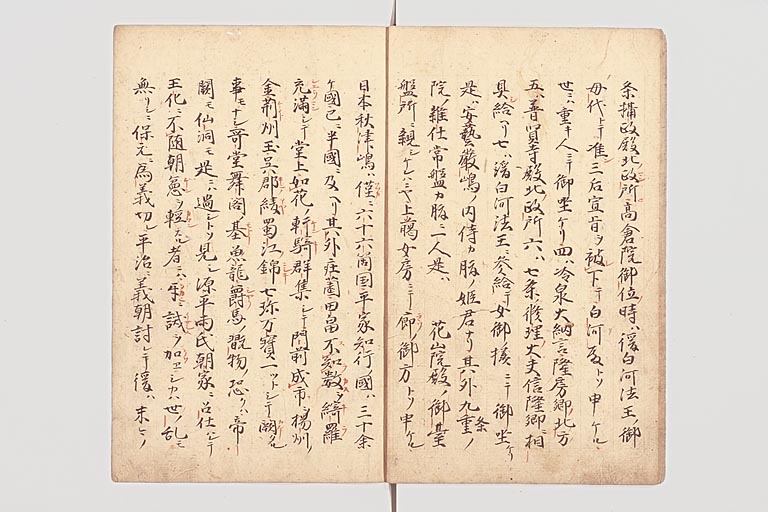 条攝政殿北政所高倉院御位時ハ後白河法王ノ御
母代トテ准三后宣旨ヲ被下テ白河殿トソ申ケル
世ニハ重キ人ニテ御坐ケリ四ハ冷泉大納言隆房卿北方
五ハ普賢寺殿北政所六ハ七条修理大夫信隆卿ニ相
具給ヘリ七ハ後白河法王ニ参給テ女御様ニテ御坐ケリ
是ハ安藝嚴嶋ノ内侍カ腹ノ姫君ナリ其外九条
院ノ雜仕常盤カ腹ニ一人是ハ花山院殿ノ御臺
盤所ニ親シケレハトテ上﨟女房ニテ廊ノ御方トソ申ケル
日本秋津嶋ハ僅ニ六十六箇國平家知行ノ國ハ三十余
ケ國已ニ半國ニ及ヘリ其外庄薗田畠不知數ヲ綺羅
充滿シテ堂上如花ノ軒騎群集シテ門前成市ヲ楊州ノ
金荊州玉呉郡綾蜀江錦七珎万寳一ットシテ闕タル
事モナシ哥堂舞閣ノ基魚龍爵馬ノ翫物恐クハ帝
闕モ仙洞モ是ニハ過シトソ見シ源平両氏朝家ニ召仕レテ
王化ニ不随朝憲ヲ軽スル者ニハ互ニ誡ヲ加エシカハ世ノ乱モ
無リシニ保元ニ爲義切レ平治ニ義朝討レテ後ハ末々ノ